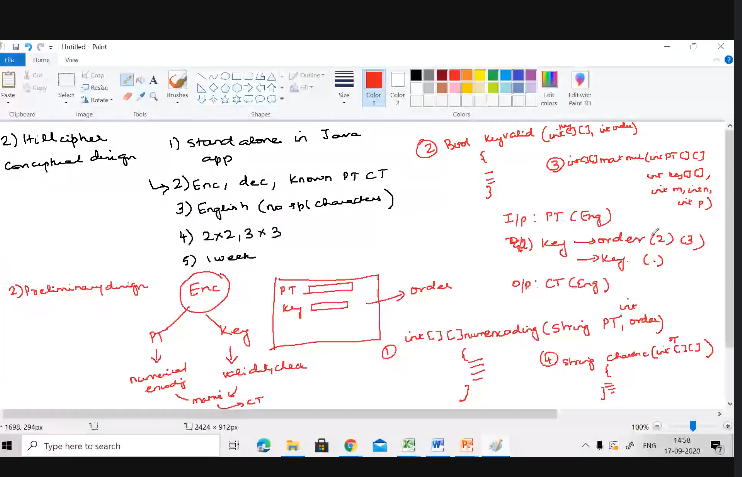 Untitled - Paint
File
Home
View
Cut
Copy
Paste
Crop
Resize
Rotate
Select
Brushes
Outline
Fill
Size
Color 1
Color 2
Edit colors
Edit with Paint 3D
Clipboard
Image
Tools
Shapes
Colors
2) Hill cipher
conceptual design
1) standalone in Java
app
2) Enc, dec, known PT CT
3) English (no spl characters)
4) 2x2, 3x3
5) 1 week
2) Preliminary design
Enc
PT
Key
numerical
encodig
validity check
CT
PT
Key
order
2 Bool Keyvalid (int key[][], int order)
{
}
3 int[][] mat mul (int PT[][]
int key[][],
int m, int n,
int p)
I/p: PT (Eng)
Key → order (2) (3)
→ Key (.)
O/p: CT (Eng)
1 int[][] numencoding (string PT, int order)
{
}
4 string charenc (int PT[][])
{
}
1698, 294px
2424 × 912px
100%
Type here to search
ENG
14:58
17-09-2020
7